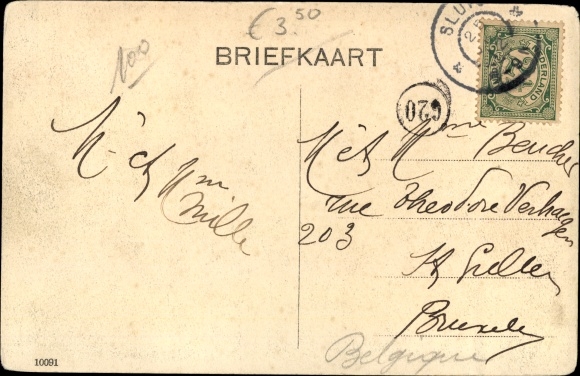 € 3.50
100
BRIEFKAART
SLUI
NEDERLAND
620
M et Mme
Mille
M et Mme
rue Theodore Verhaegen
203
St Gilles
Bruxelles
Belgique
10091